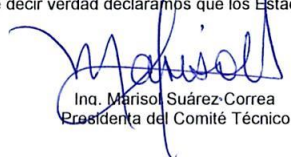 decir verdad declaramos que los Esta
Marisol
Ing. Marisol Suárez Correa
Presidenta del Comité Técnico